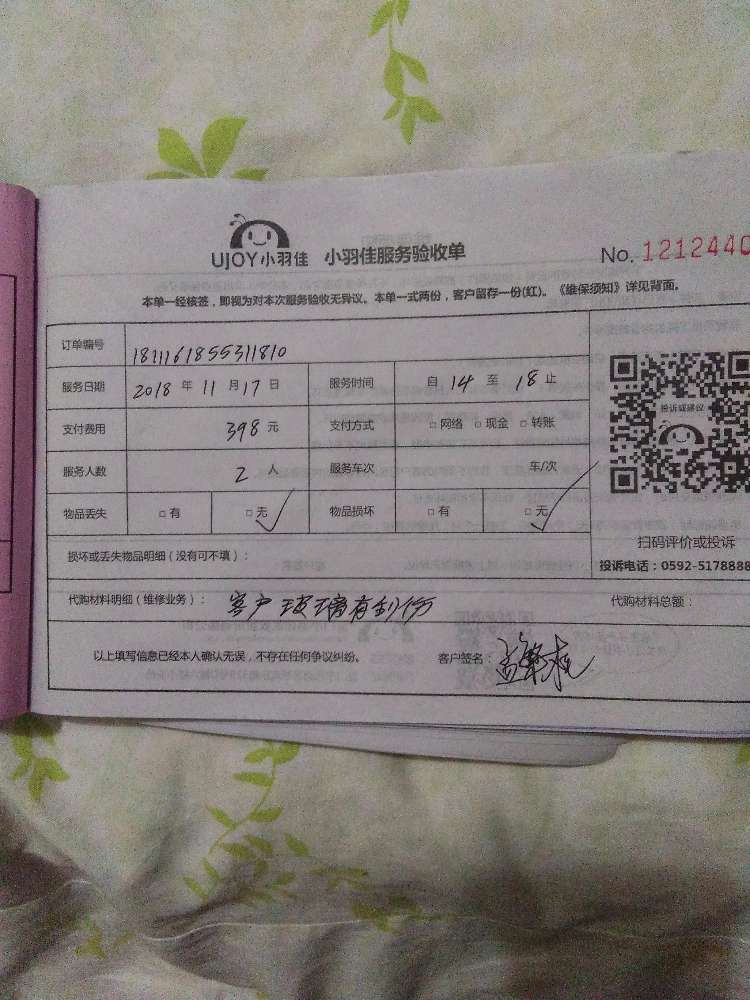 UJOY小羽佳 小羽佳服务验收单 No. 1212440
本单一经核签，即视为对本次服务验收无异议。本单一式两份，客户留存一份(红)。《维保须知》详见背面。
订单编号 1811161855311810
服务日期 2018 年 11 月 17 日 服务时间 自 14 至 18 止
支付费用 398 元 支付方式 □ 网络 □ 现金 □ 转账
投诉或建议
服务人数 2 人 服务车次 车/次
物品丢失 □ 有 □ 无 物品损坏 □ 有 □ 无
扫码评价或投诉
损坏或丢失物品明细（没有可不填）：
投诉电话：0592-5178888
代购材料明细（维修业务）： 客户玻璃有刮伤 代购材料总额：
以上填写信息已经本人确认无误，不存在任何争议纠纷。 客户签名：